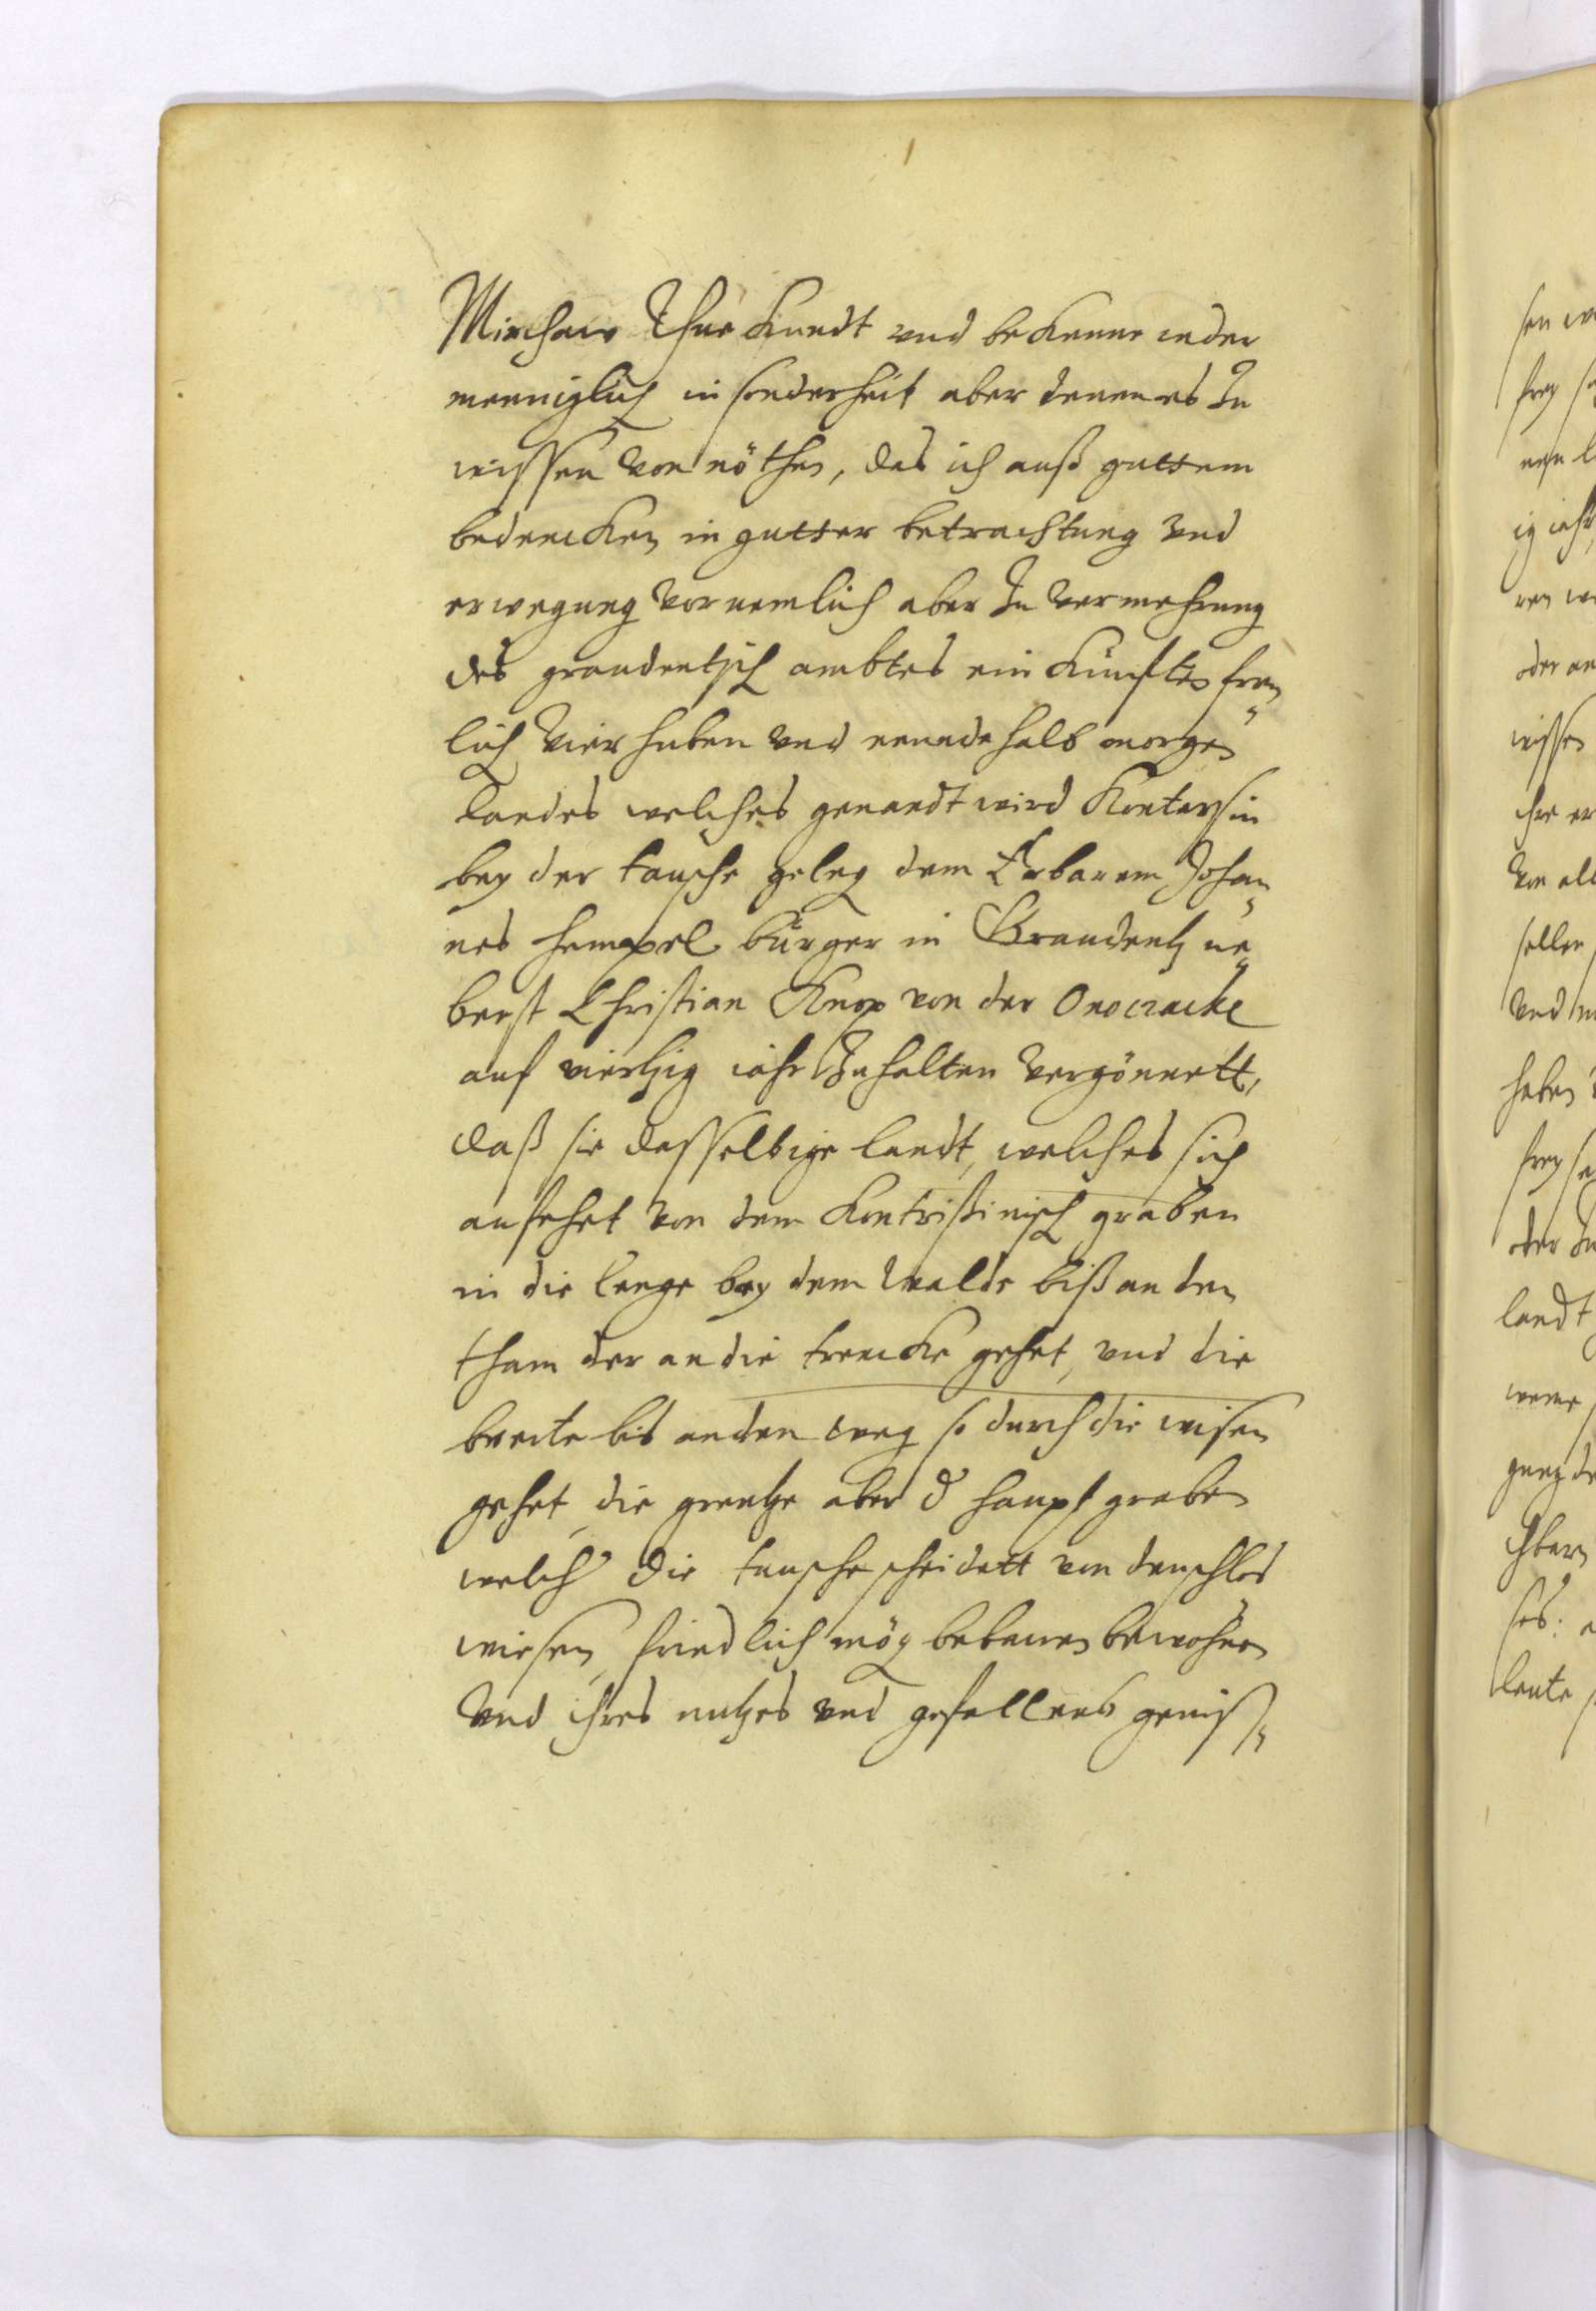 Mirchaw Thue Kundt vnd bekenne ieder
menniglich in sonderheit aber denen es Zu
wissen von nöthen, das ich auß guttem
bedencken in gutter betrachtung Vnd
erwegung vornemlich aber Zu vermehrung
des graudentzsch ambtes ein künfften frey
lich Vier huben vnd neundehalb morgen
landes welches genandt wird Kontersin
bey der tausche geleg dem Erbarem Johan
nes Hempel bürger in Graudentz ne
benst Christian Knop von der Onoczacke
auf viertzig iahr Zuhalten Vergönnett,
daß sie dasselbige landt, welches sich
anfehet von dem Kontrißinisch graben
in die lenge bey dem Walde biß an den
tham der an die trencke gehet, vnd die
breite bis an den weg so durch die wisen
gehet, die grentze aber d haupt graben
welch die tausche scheidett von den schlos
wiesen, friedlich mög bebauen bewohnen
Vnd ihres nutzes vnd gefallens genis
sen
frey
ren
oder
wissen
ihre
Von
Vnd
haben
frey
oder Zu
landt
leute